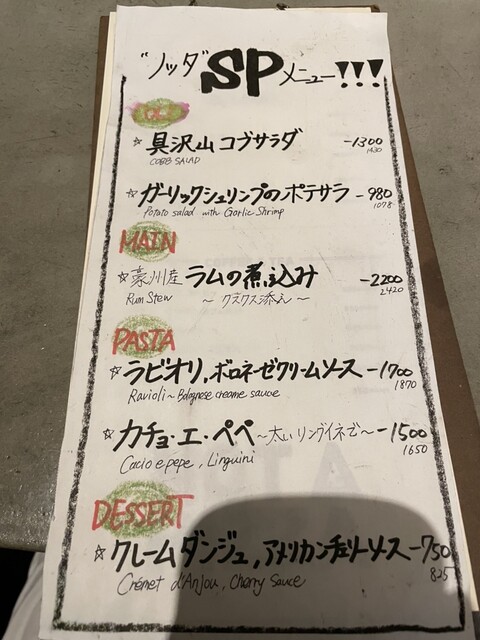 "ノッダ" SP メニュー!!!
☆具沢山 コブサラダ -1300
COBB SALAD 1430
☆ガーリックシュリンプのポテサラ -980
Potato salad with Garlic Shrimp 1078
MAIN
☆豪州産 ラムの煮込み -2200
Rum Stew ～クスクス添え～ 2420
PASTA
☆ラビオリ,ボロネーゼクリームソース -1700
Ravioli~Bolognese creame sauce 1870
☆カチョ・エ・ペペ～太いリングイネで～ -1500
Cacio e pepe, Linguini 1650
DESSERT
☆クレームダンジュ,アメリカンチェリーソース -750
Crémet d'Anjou, Charry Sauce 825